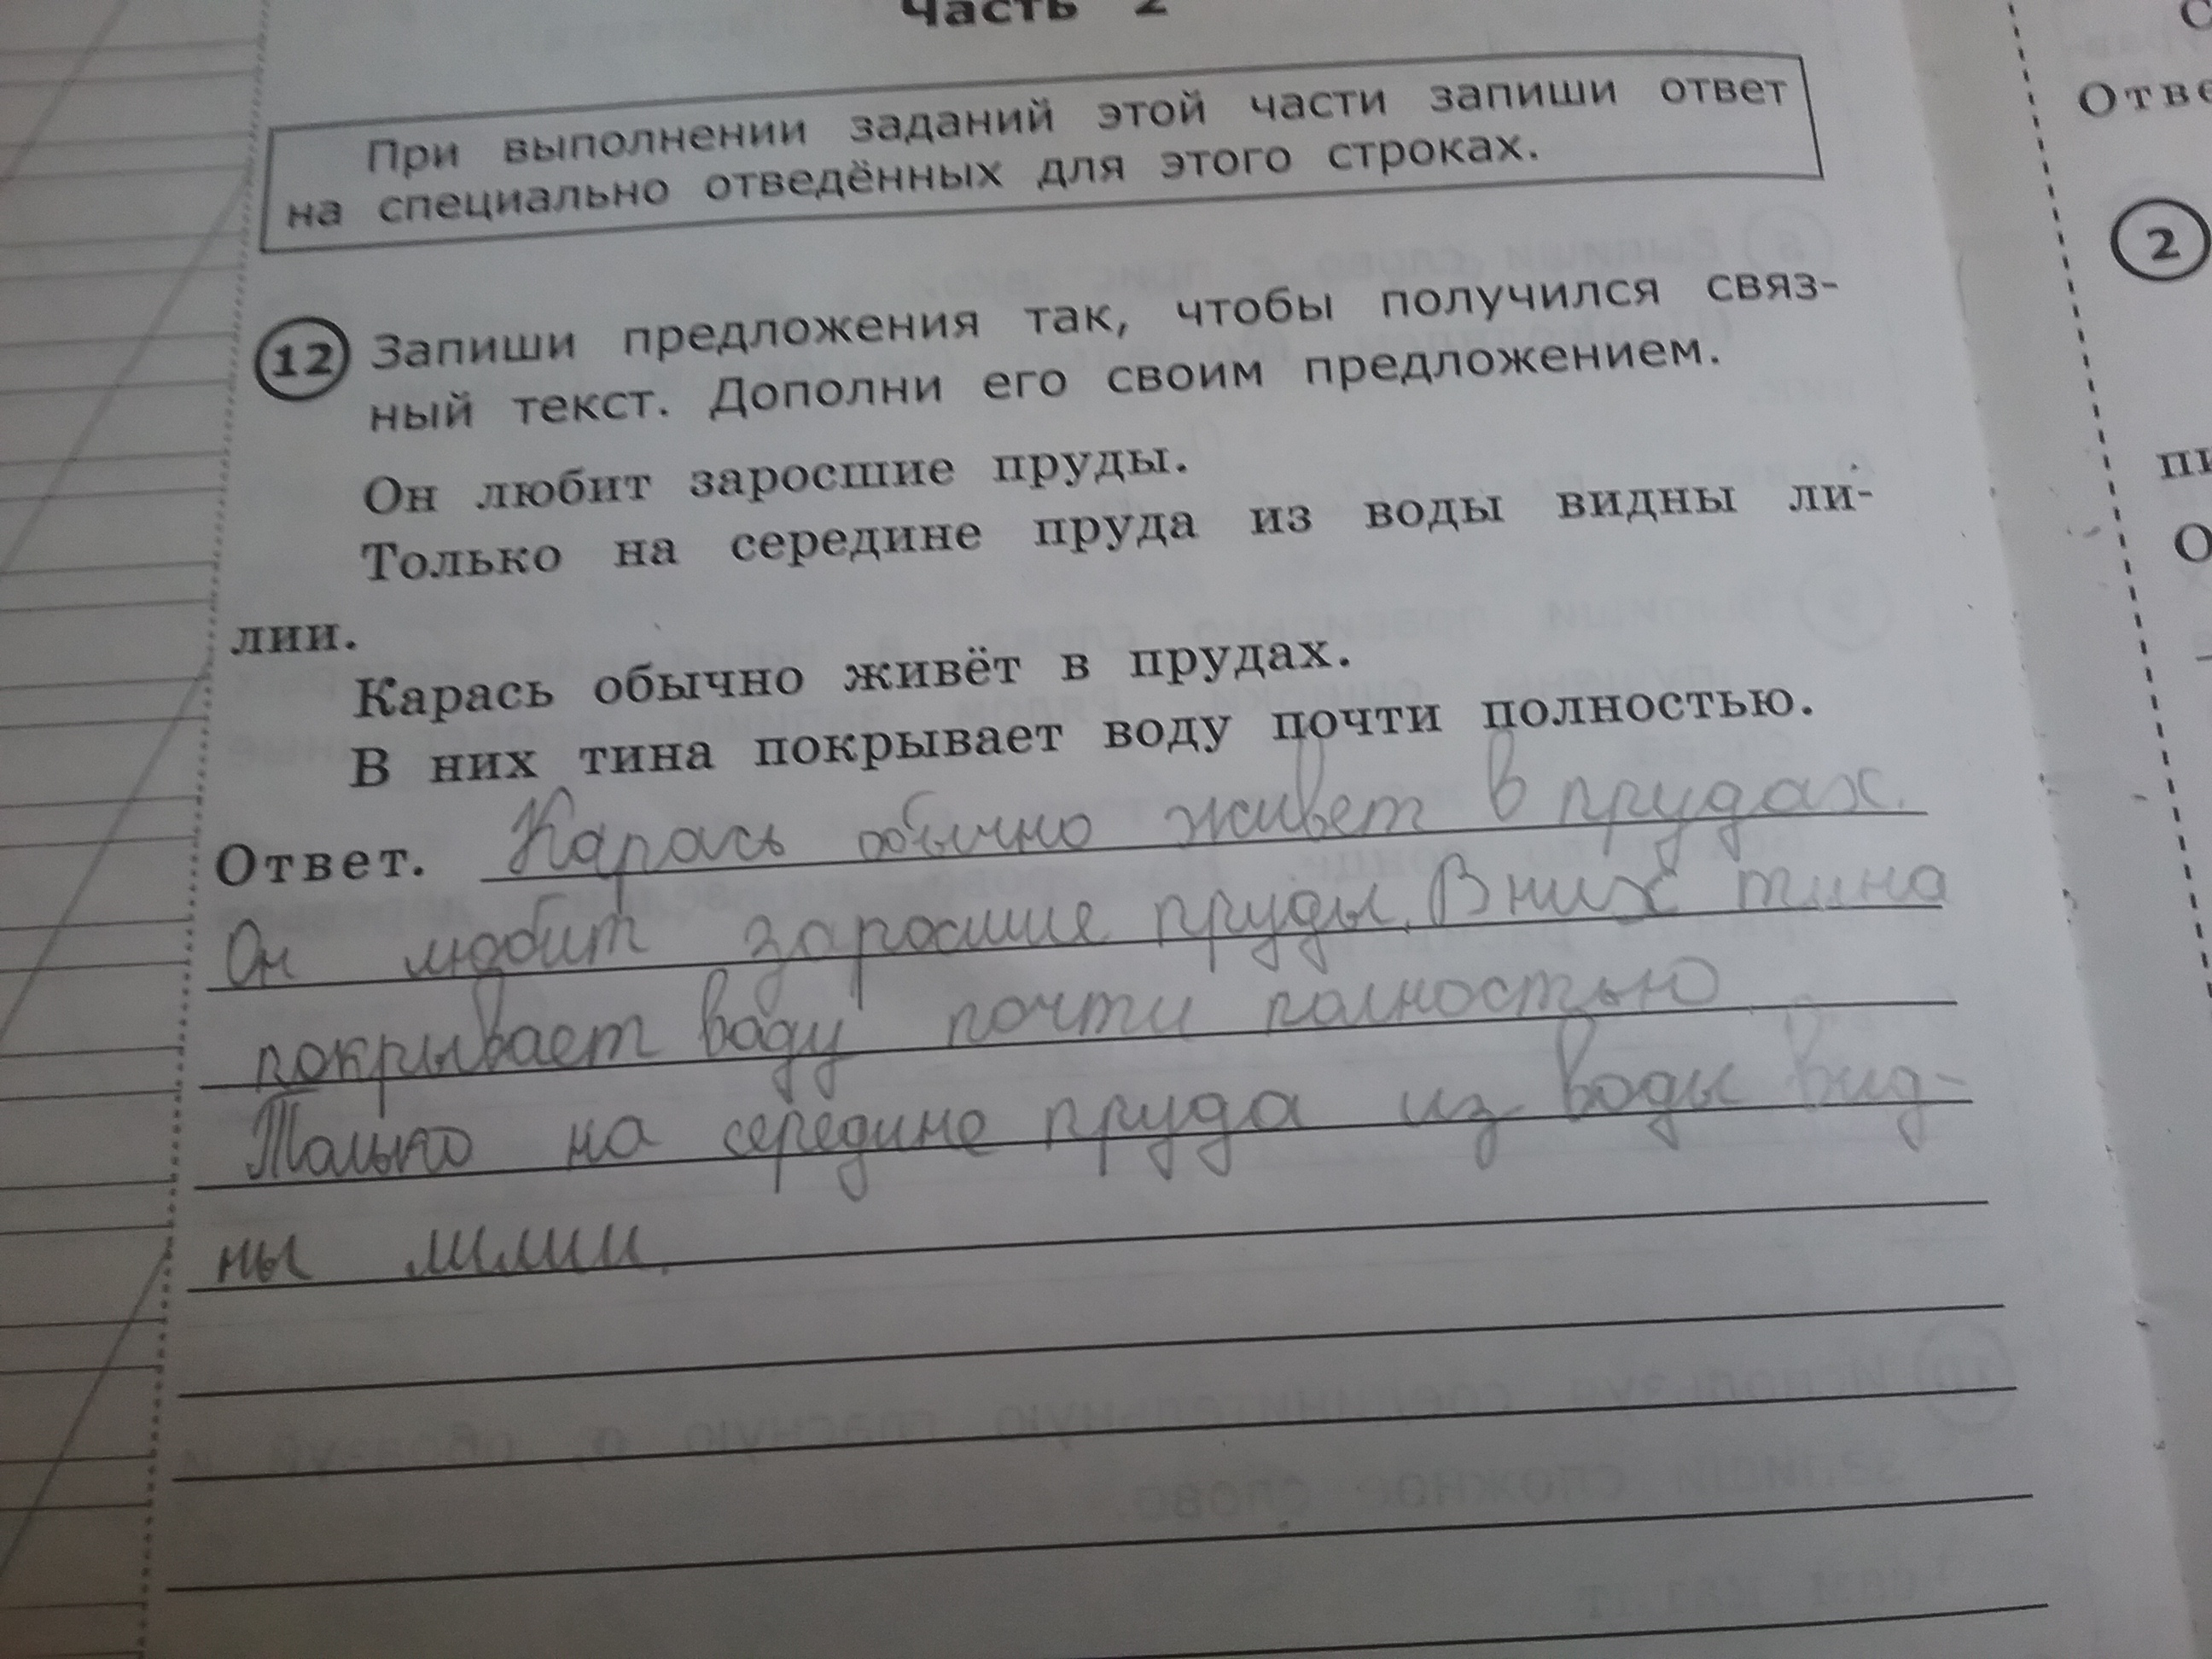 Часть 2
При выполнении заданий этой части запиши ответ
на специально отведённых для этого строках.
12 Запиши предложения так, чтобы получился связ-
ный текст. Дополни его своим предложением.
Он любит заросшие пруды.
Только на середине пруда из воды видны ли-
лии.
Карась обычно живёт в прудах.
В них тина покрывает воду почти полностью.
Ответ. Карась обычно живет в прудах.
Он любит заросшие пруды. В них тина
покрывает воду почти полностью
Только на середине пруда из воды вид-
ны лилии.
Отве
2